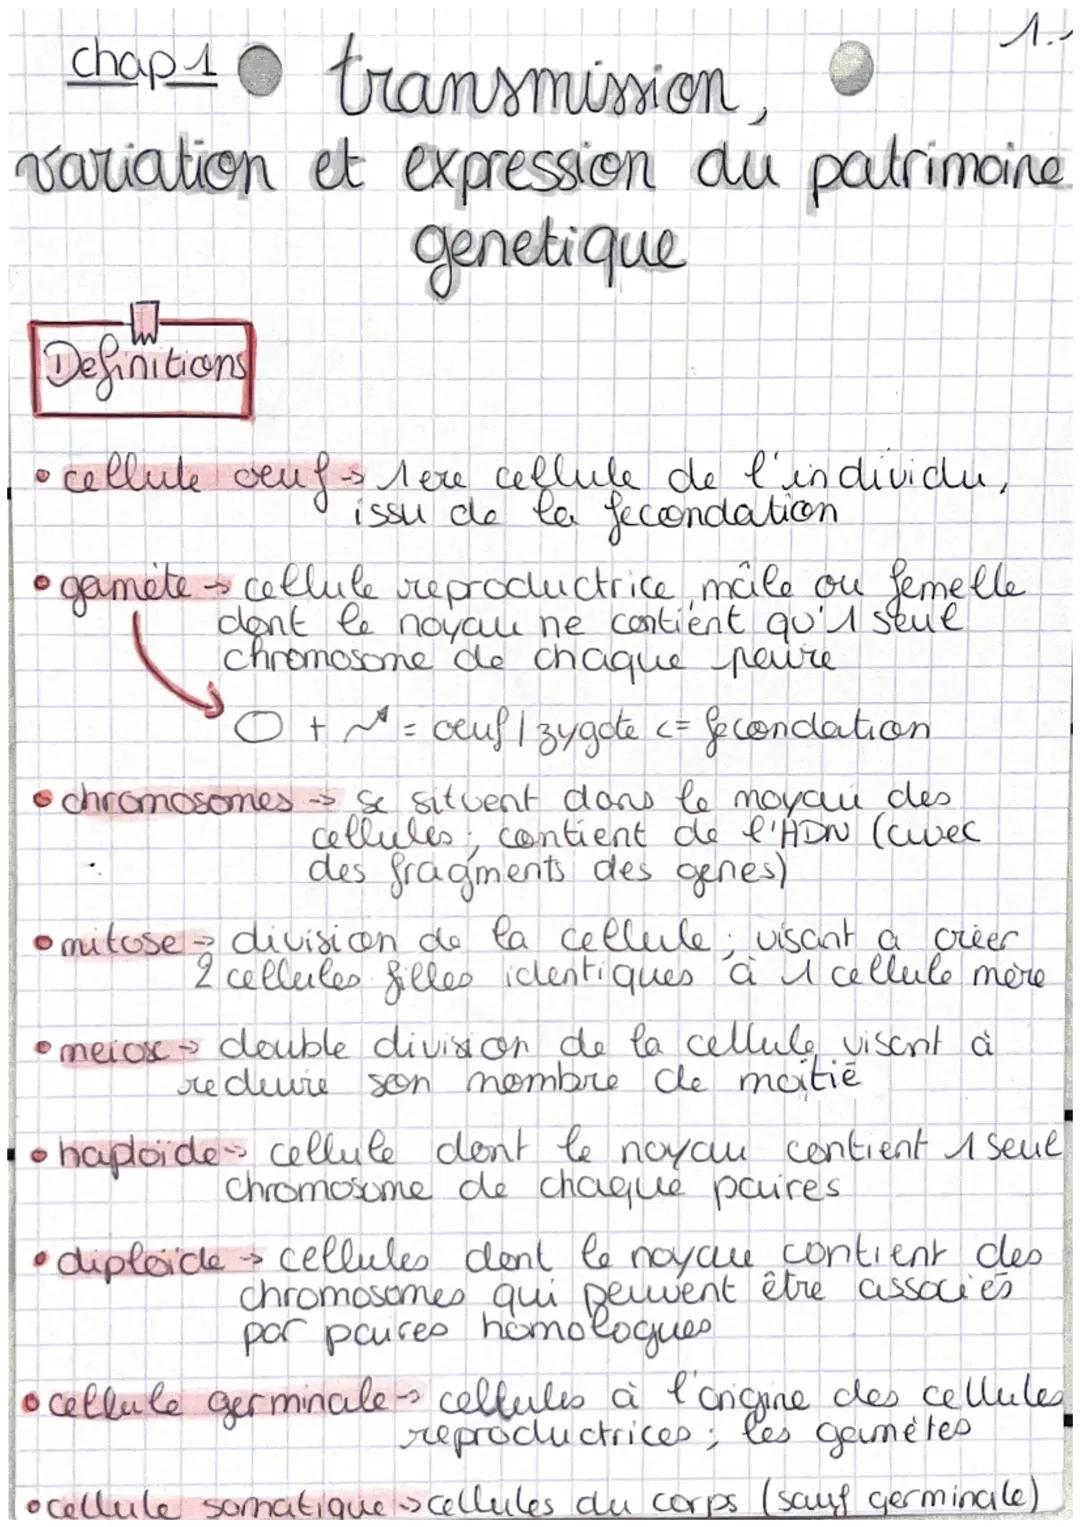 chap 1
1.
transmission,
variation et expression du patrimoine
genetique
Definitions
• cellule oeuf → 1ere cellule de l'individu,
issu de la fecondation
• gamète → cellule reproductrice mâle ou femelle
dont le noyau ne contient qu'1 seul
chromosome de chaque paire
+ = oeuf / zygote <= fecondation
• chromosomes → se situent dans le noyau des
cellules ; contient de l'ADN (avec
des fragments des genes)
• mitose → division de la cellule ; visant a créer
2 cellules filles identiques à 1 cellule mère
• meiose → double division de la cellule visant à
reduire son nombre de moitié
• haploïde → cellule dont le noyau contient 1 seul
chromosome de chaque paires
• diploïde → cellules dont le noyau contient des
chromosomes qui peuvent être associés
par paires homologues
• cellule germinale → cellules à l'origine des cellules
reproductrices ; les gamètes
• cellule somatique → cellules du corps (sauf germinale)